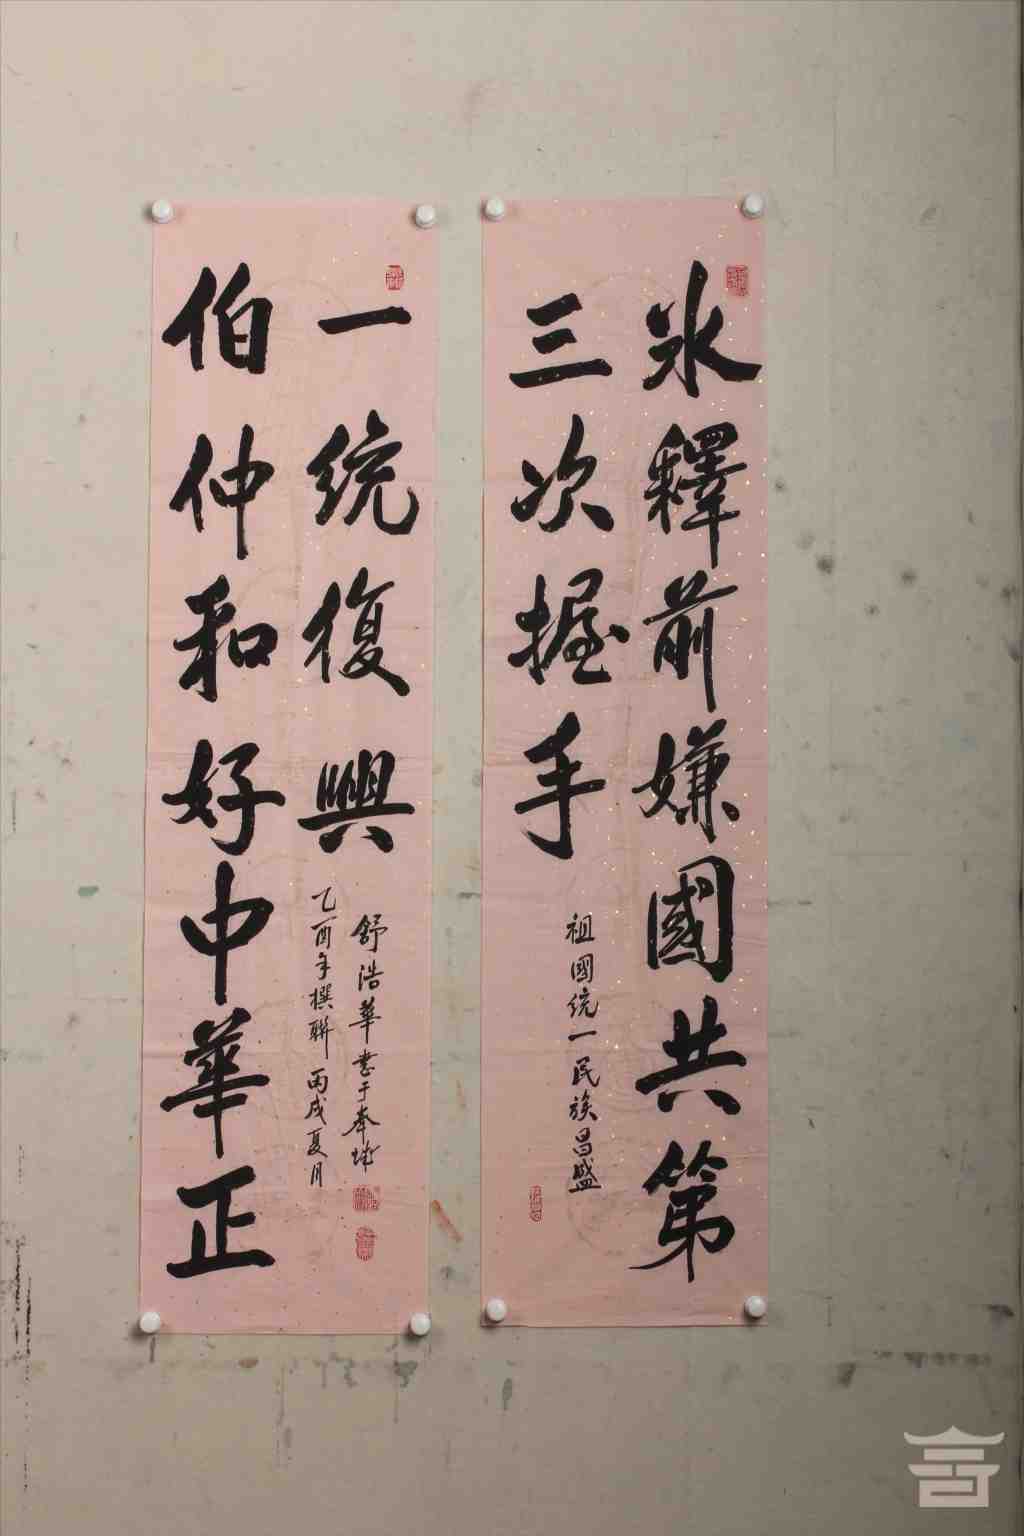 冰釋前嫌國共第
三次握手
祖國統一民族昌盛
伯仲和好中華正
一統復興
乙酉年撰聯丙戌夏月
舒浩華書于奉城